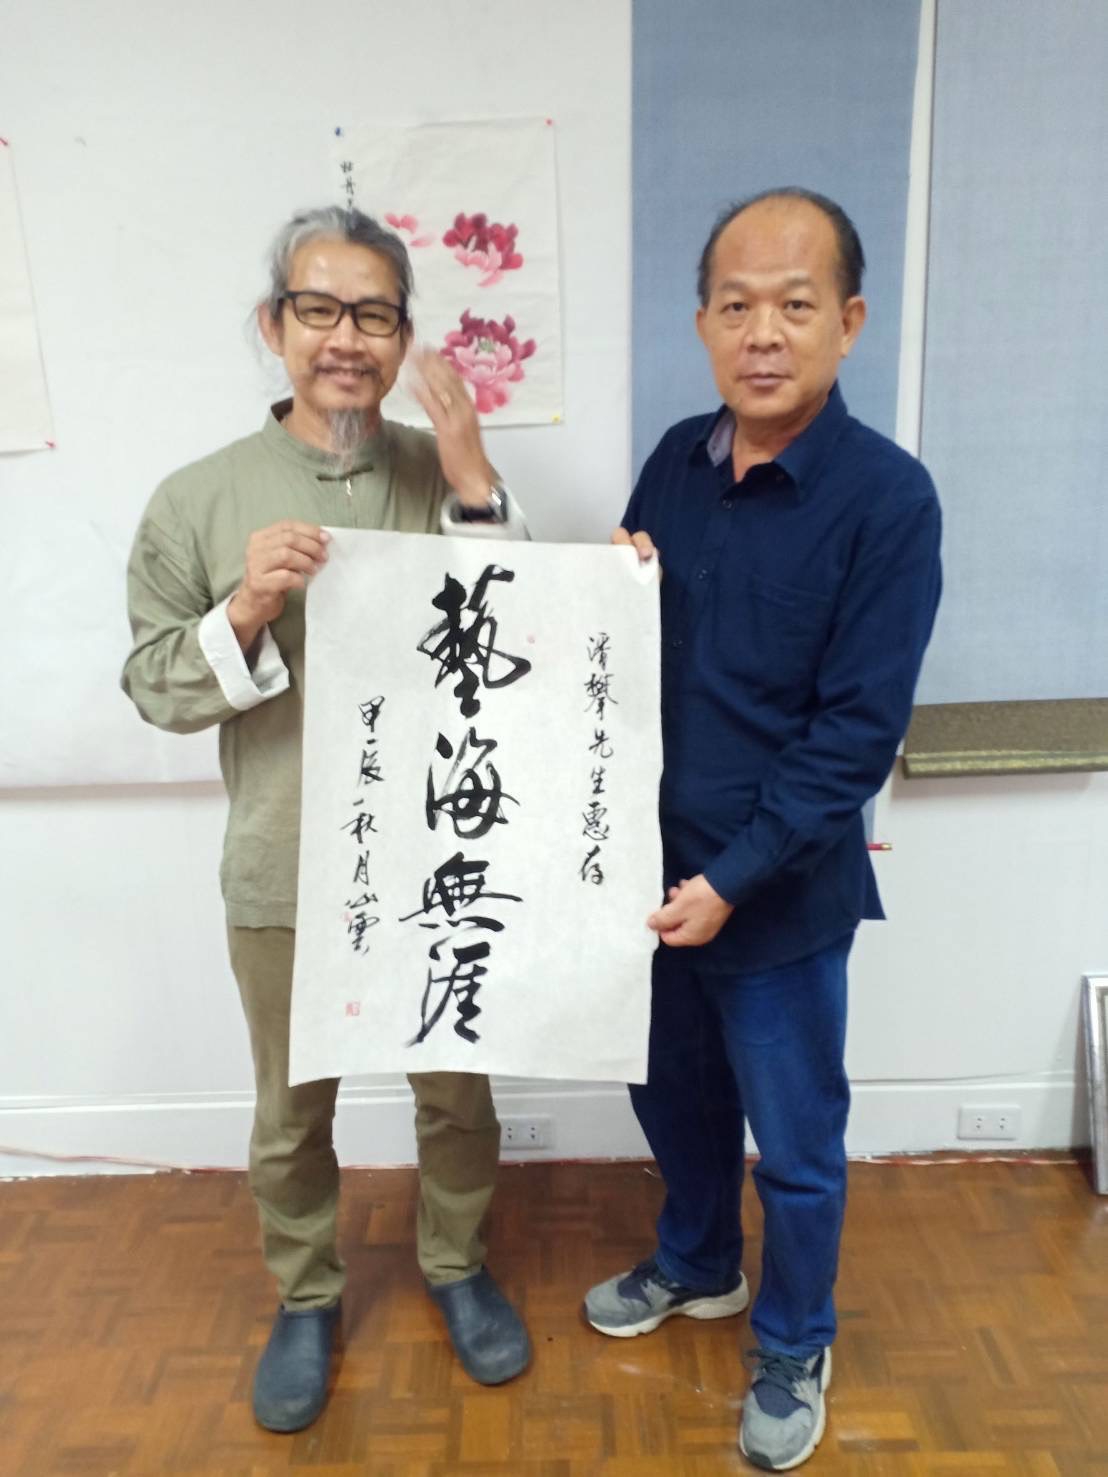 清攀先生惠存
藝海無涯
甲辰秋月山雲
牡丹